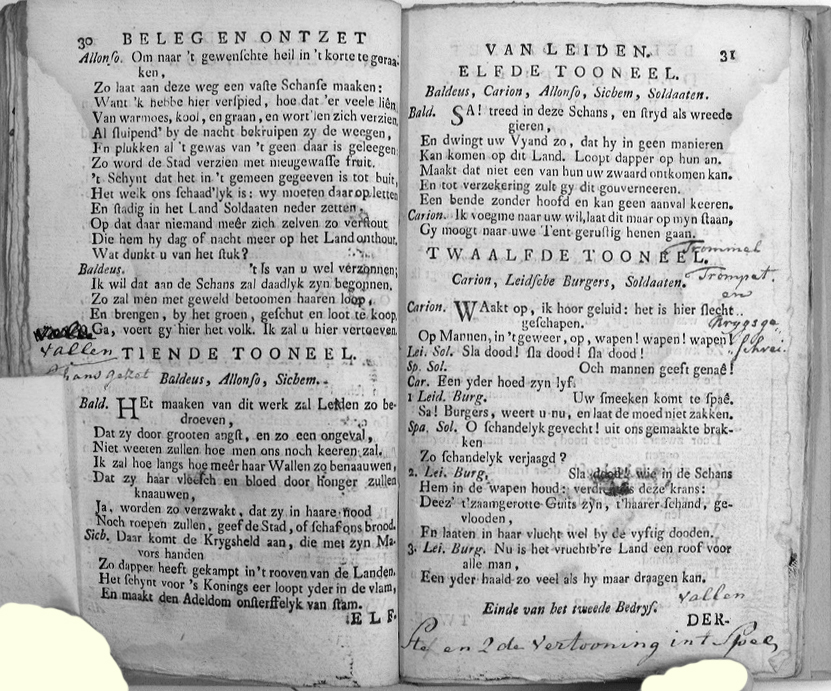 30 BELEG EN ONTZET
Allonso. Om naar 't gewenschte heil in 't korte te geraa-
ken,
Zo laat aan deze weg een vaste Schanse maaken:
Want 'k hebbe hier verspied, hoe dat 'er veele liên
Van warmoes, kool, en graan, en wortlen zich verzien,
Al sluipend' by de nacht bekruipen zy de weegen,
En plukken al 't gewas van 't geen daar is geleegen;
Zo word de Stad verzien met nieugewasse fruit.
't Schynt dat het in 't gemeen gegeeven is tot buit,
Het welk ons schaad'lyk is: wy moeten daar op letten
En stadig in het Land Soldaaten neder zetten,
Op dat daar niemand meêr zich zelven zo verstout
Die hem hy dag of nacht meer op het Land onthout,
Wat dunkt u van het stuk?
Baldeus. 't Is van u wel verzonnen;
Ik wil dat aan de Schans zal daadlyk zyn begonnen.
Zo zal men met geweld betoomen haaren loop,
En brengen, by het groen, geschut en loot te koop.
Ga, voert gy hier het volk. Ik zal u hier vertoeven.
vallen
TIENDE TOONEEL.
Baldeus, Allonso, Sichem.
Bald. HEt maaken van dit werk zal Leiden zo be-
droeven,
Dat zy door grooten angst, en zo een ongeval,
Niet weeten zullen hoe men ons noch keeren zal.
Ik zal hoe langs hoe meêr haar Wallen zo benaauwen,
Dat zy haar vleesch en bloed door honger zullen
knaauwen,
Ja, worden zo verzwakt, dat zy in haare nood
Noch roepen zullen, geef de Stad, of schaf ons brood.
Sich. Daar komt de Krygsheld aan, die met zyn Ma-
vors handen
Zo dapper heeft gekampt in 't rooven van de Landen,
Het schynt voor 's Konings eer loopt yder in de vlam,
En maakt den Adeldom onsterffelyk van stam.
ELF-
VAN LEIDEN. 31
ELFDE TOONEEL.
Baldeus, Carion, Allonso, Sichem, Soldaaten.
Bald. SA! treed in deze Schans, en stryd als wreede
gieren,
En dwingt uw Vyand zo, dat hy in geen manieren
Kan komen op dit Land. Loopt dapper op hun an.
Maakt dat niet een van hun uw zwaard ontkomen kan.
En tot verzekering zult gy dit gouverneeren.
Een bende zonder hoofd en kan geen aanval keeren.
Carion. Ik voeg me naar uw wil, laat dit maar op myn staan,
Gy moogt naar uwe Tent gerustig henen gaan.
Trommel
TWAALFDE TOONEEL.
Trompet.
Carion, Leidsche Burgers, Soldaaten.
en
Carion. WAakt op, ik hoor geluid: het is hier slecht
Krygsge
geschapen.
Op Mannen, in 't geweer, op, wapen! wapen! wapen!
schrei
Lei. Sol. Sla dood! sla dood! sla dood!
Sp. Sol. Och mannen geeft genaê!
Car. Een yder hoed zyn lyf.
1 Leid. Burg. Uw smeeken komt te spaê.
Sa! Burgers, weert u nu, en laat de moed niet zakken.
Spa. Sol. O schandelyk gevecht! uit ons gemaakte brak-
ken
Zo schandelyk verjaagd?
2. Lei. Burg. Sla dood! wie in de Schans
Hem in de wapen houd: deze krans:
Deez' t'zaamgerotte Guits zyn, t'haarer schand, ge-
vlooden,
En laaten in haar vlucht wel by de vyftig dooden.
3. Lei. Burg. Nu is het vruchtb're Land een roof voor
alle man,
Een yder haald zo veel als hy maar draagen kan.
vallen
Einde van het tweede Bedryf.
DER-
en 2de Vertooning int Spel